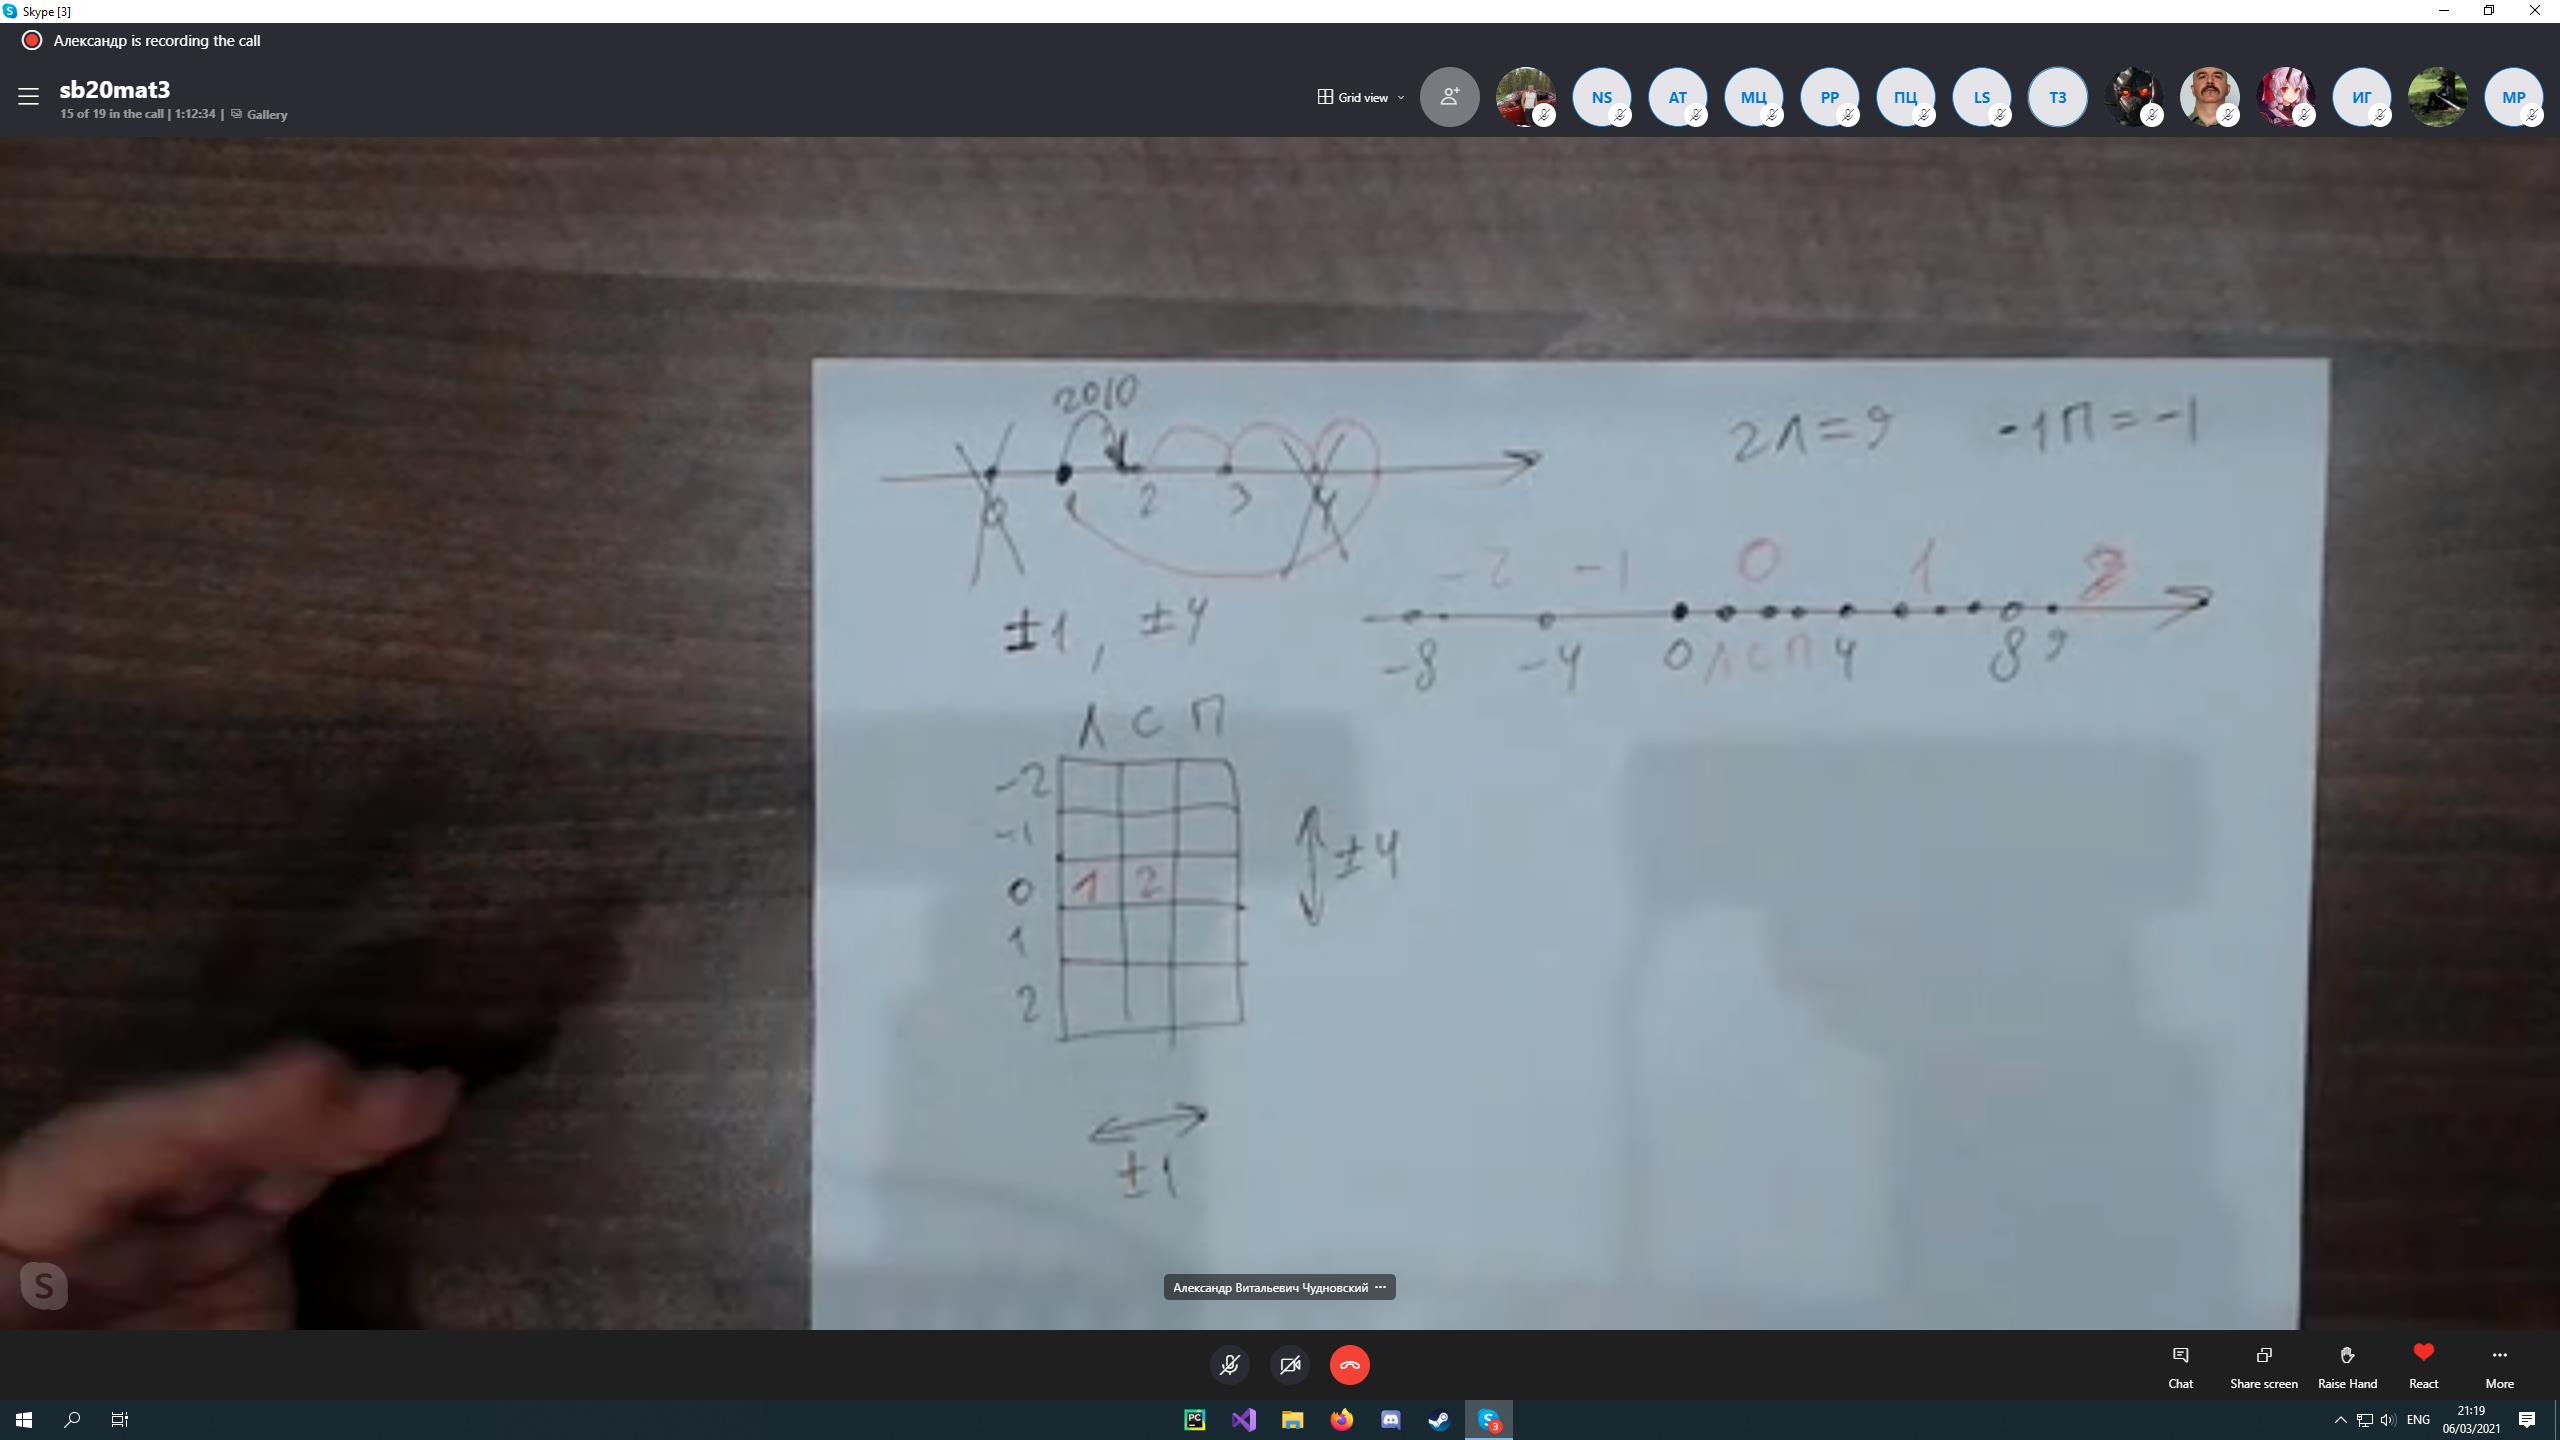 Skype [3]
Александр is recording the call
sb20mat3
15 of 19 in the call | 1:12:34 | Gallery
Grid view
NS
AT
МЦ
PP
ПЦ
LS
ТЗ
ИГ
MP
2010
2Л=9
-1П=-1
0 1 2 3 4
±1, ±4
-2 -1 0 1 2
-8 -4 0 Л С П 4 8 9
Л С П
-2
-1
0 1 2
1
2
±4
±1
Александр Витальевич Чудновский
Chat
Share screen
Raise Hand
React
More
PC
S
3
ENG
21:19
06/03/2021